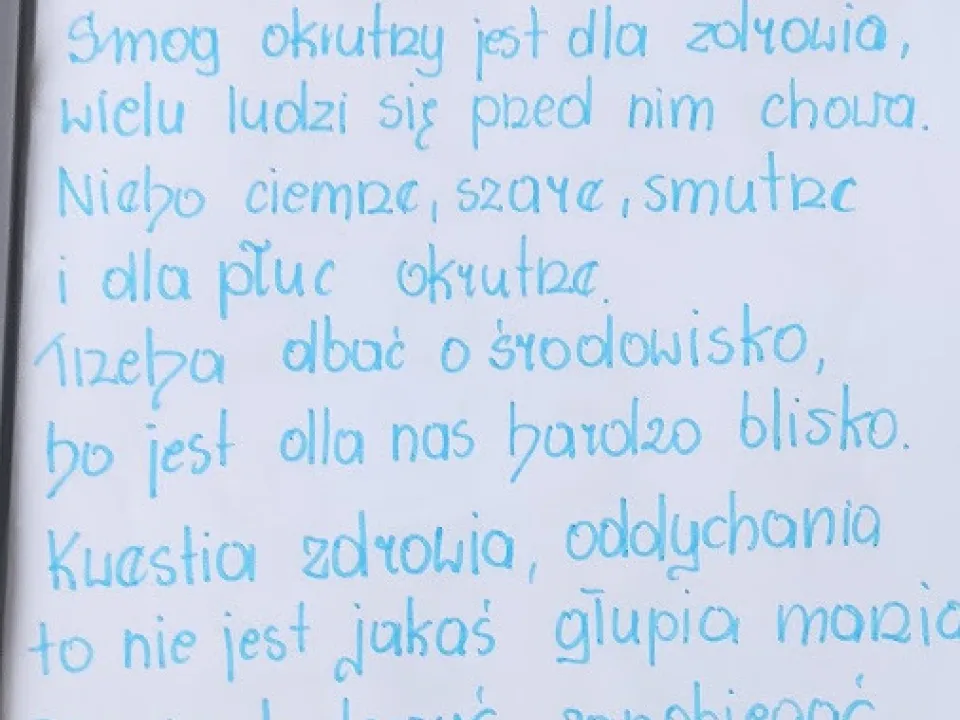 Smog okrutny jest dla zdrowia,
wielu ludzi się przed nim chowa.
Niebo ciemne, szare, smutne
i dla płuc okrutne.
Trzeba dbać o środowisko,
bo jest dla nas bardzo blisko.
Kwestia zdrowia, oddychania
to nie jest jakaś głupia mania
zapobiegać